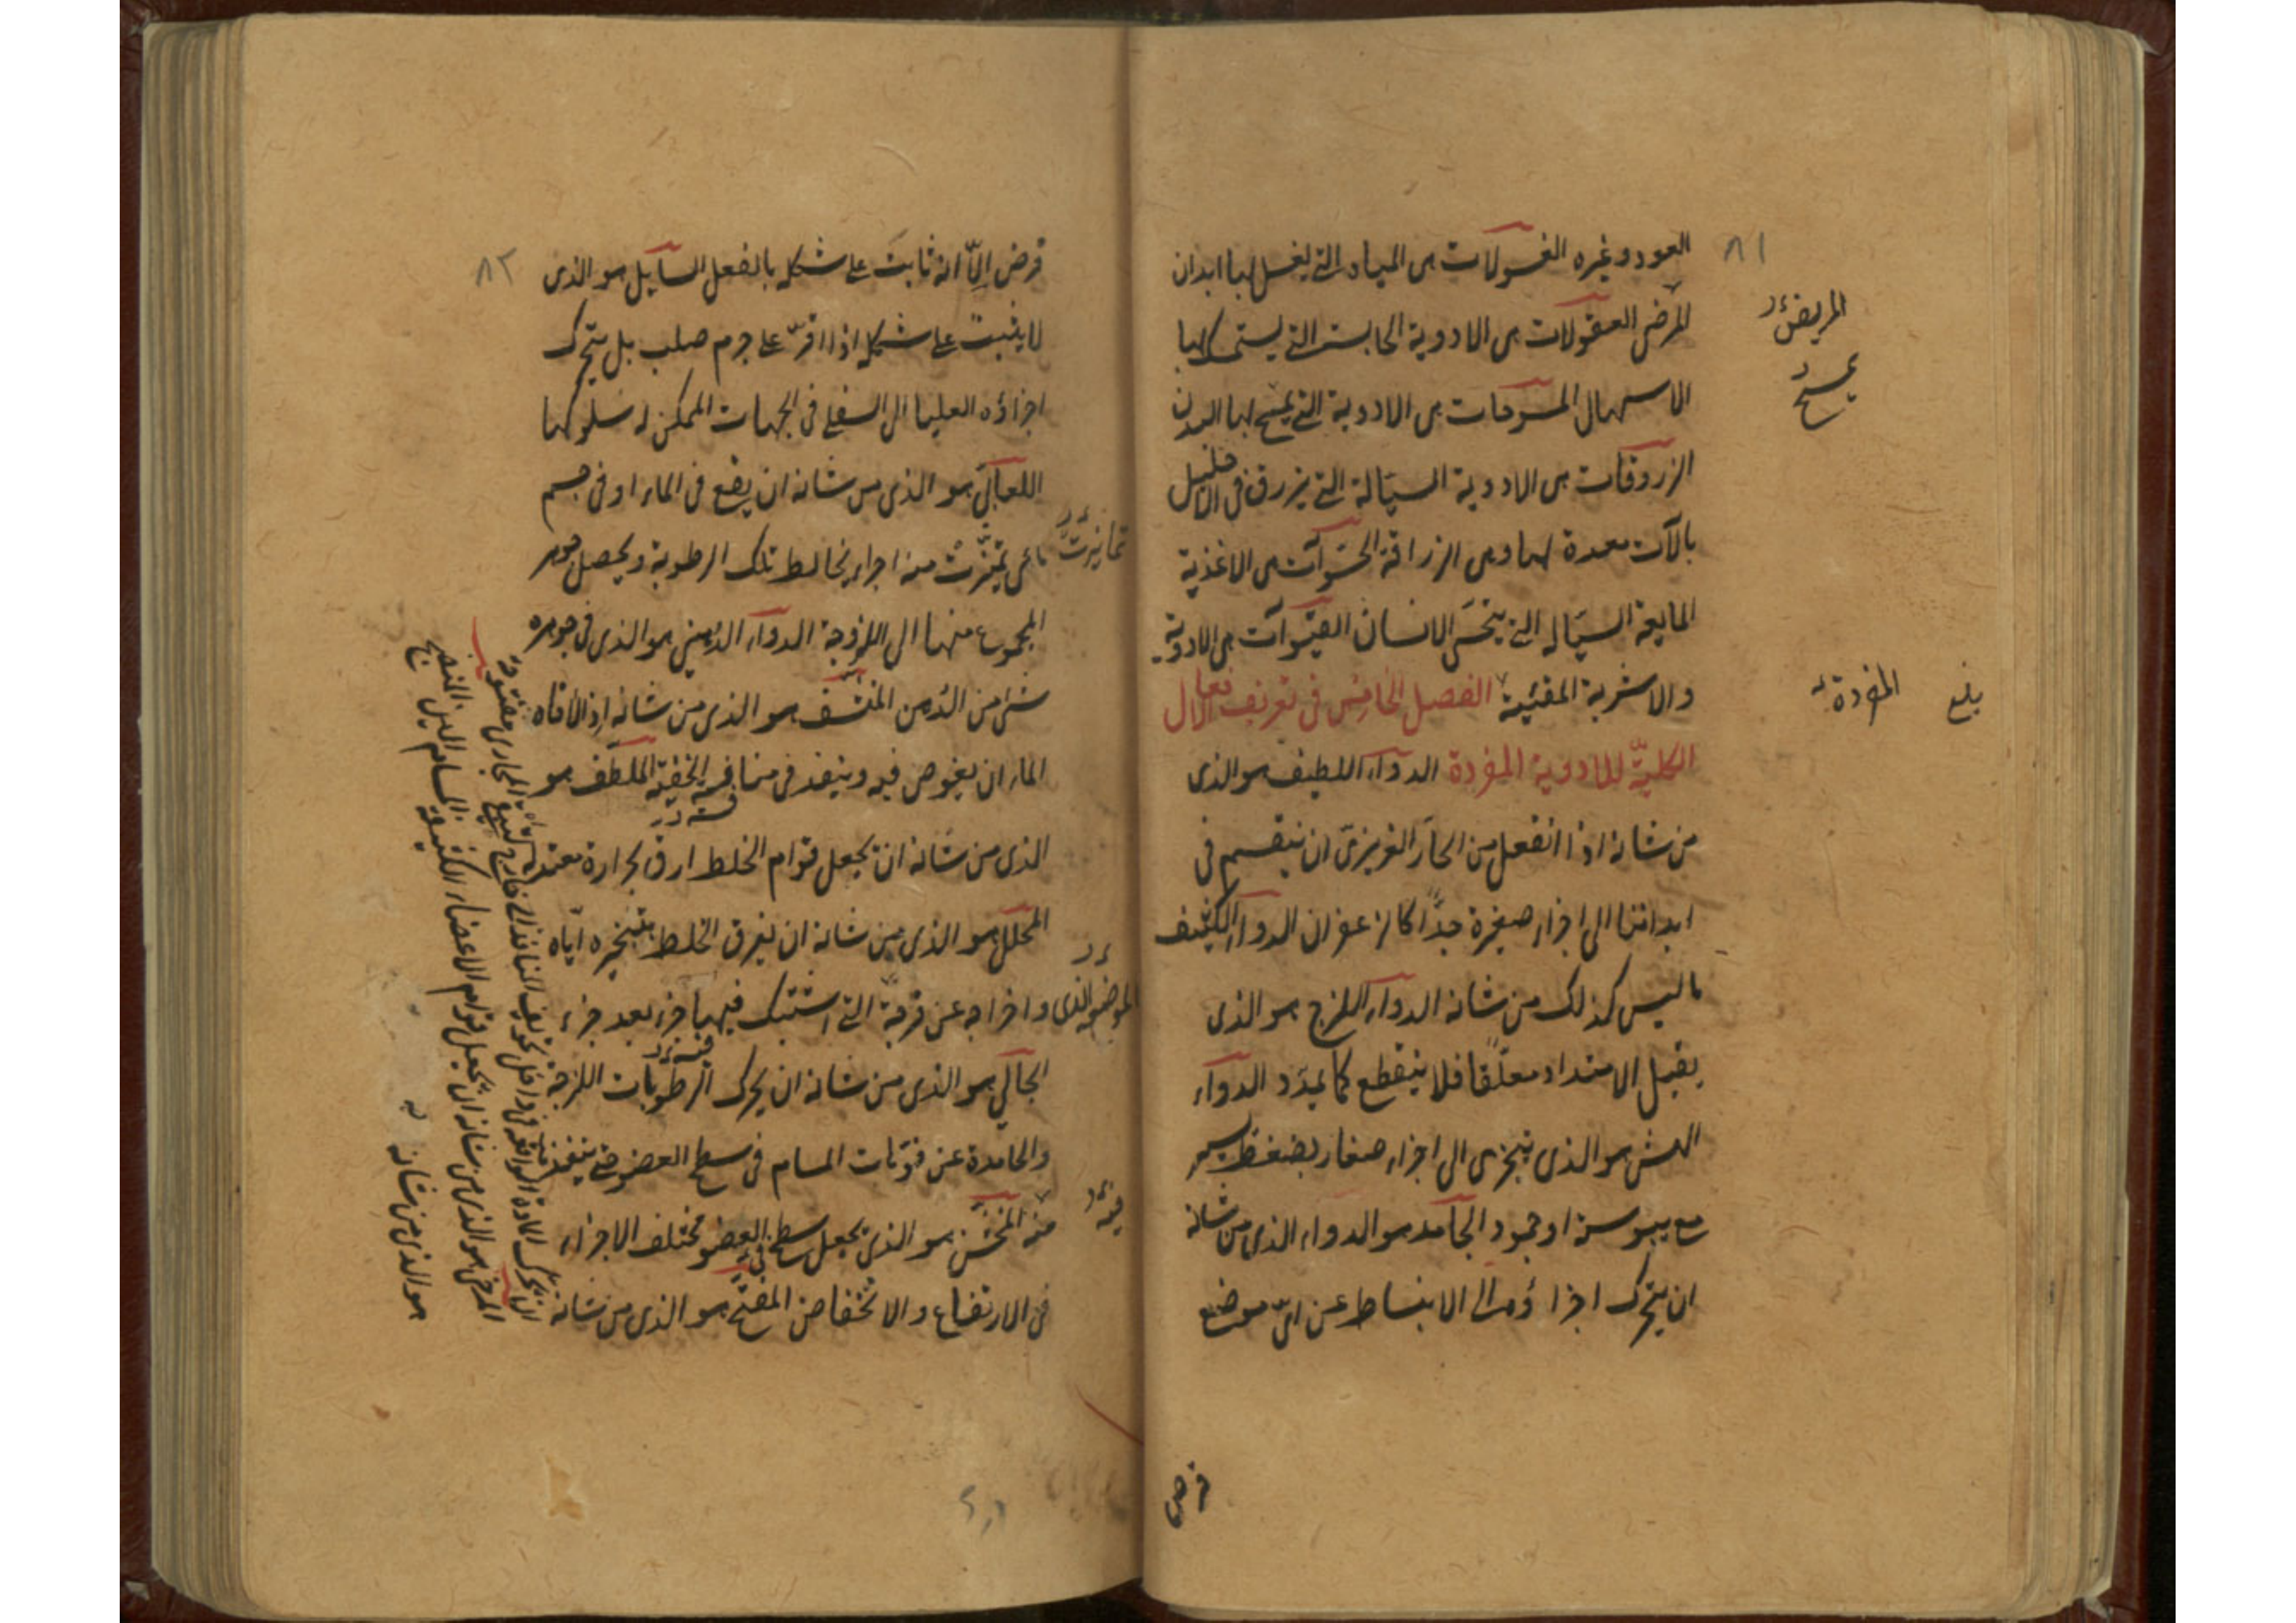 ٨١
العود وغيره الغسولات هى المياه التى يغسل بها ابدان
المرضى العقولات هى الادوية الحابسة التى يستمسك بها
الاسهال المسوحات هى الادوية التى يمسح بها البدن
الزروقات هى الادوية السيّالة التى يزرق فى الاحليل
بالآت معدة لها وهى الزراقة الحسوآت هى الاغذية
المايعة السيّاله التى يتحسّى الانسان القيوآت هى الادوية
والاشربة المقيّية الفصل الخامس فى تعريف الافعال
الكليّة للادوية المفردة الدوآء اللطيف هو الذى
من شانه اذا انفعل من الحار الغريزىّ ان ينقسم فى
ابداننا الى اجزاء صغيرة جدّا كالزعفران الدوآء الكثيف
ما ليس كذلك من شانه الدوآء اللزج هو الذى
يقبل الامتداد معلّقا فلا ينقطع كما يمدّد الدوآء
الهش هو الذى يتجزى الى اجزاء صغار بضغط يسير
مع يبوسة او جمود الجامد هو الدواء الذى من شانه
ان يتحرك اجزاؤه الى الانبساط عن اىّ موضع
المريض
يمسح
المفردة
بلغ
فرض
٨٢
فرض الّا انه ثابت على شكله بالفعل السآيل هو الذى
لا يثبت على شكله اذا اقرّ على جرم صلب بل يتحرك
اجزاؤه العليا الى السفلى فى الجهات الممكن له سلوكها
اللعابىّ هو الذى من شانه ان يقع فى الماء او فى جسم
مائى منه اجزاء يخالط تلك الرطوبة ويحصل جوهر
المجموع منهما الى اللزوجة الدوآء الدُهنى هو الذى فى جوهره
شئ من الدُهن المنشّف هو الذى من شانه اذا لاقاه
الماء ان يغوص فيه وينفذ فى منافسه الخفيّة الملطّف هو
الذى من شانه ان يجعل قوام الخلط ارق بحرارة معتدلة
المحلّل هو الذى من شانه ان يفرق الخلط بتبخيره ايّاه
واخراجه عن التى اشتبك فيها جزء بعد جزء
الجالى هو الذى من شانه ان يحرك الرطوبات اللزجة
والجامدة عن فوّهات المسام فى سطح العضو حتى ينفذ
منه المخشّن هو الذى يجعل سطح العضو مختلف الاجزاء
فى الارتفاع والانخفاض المفتّح هو الذى من شانه
الموضع الذى
فيه
ان يحرك المادة الواقعة فى داخل تجويف المنافذ الى خارج المجارى مفتوحة
المرخى هو الذى من شانه ان يجعل قوام الاعضاء الكثيفة المسام الين المنضج
هو الذى من شانه